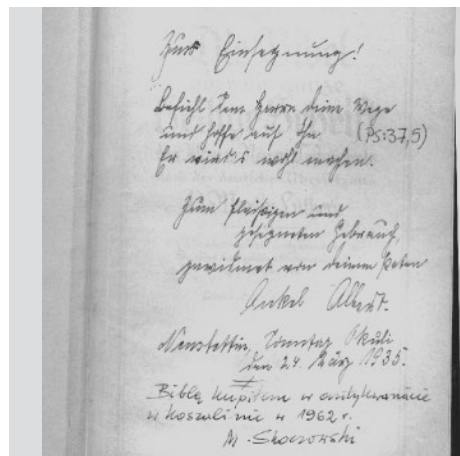 Zur Einsegnung!
Befiehl dem Herrn deine Wege
und hoffe auf Ihn (Ps: 37,5)
Er wird's wohl machen.
Zum fleißigen und
gesegneten Gebrauch,
gewidmet von deinem Paten
Onkel Albert.
Neustettin, Sonntag Okuli
den 24. März 1935.
Biblę kupiłem w antykwariacie
w Koszalinie w 1962 r.